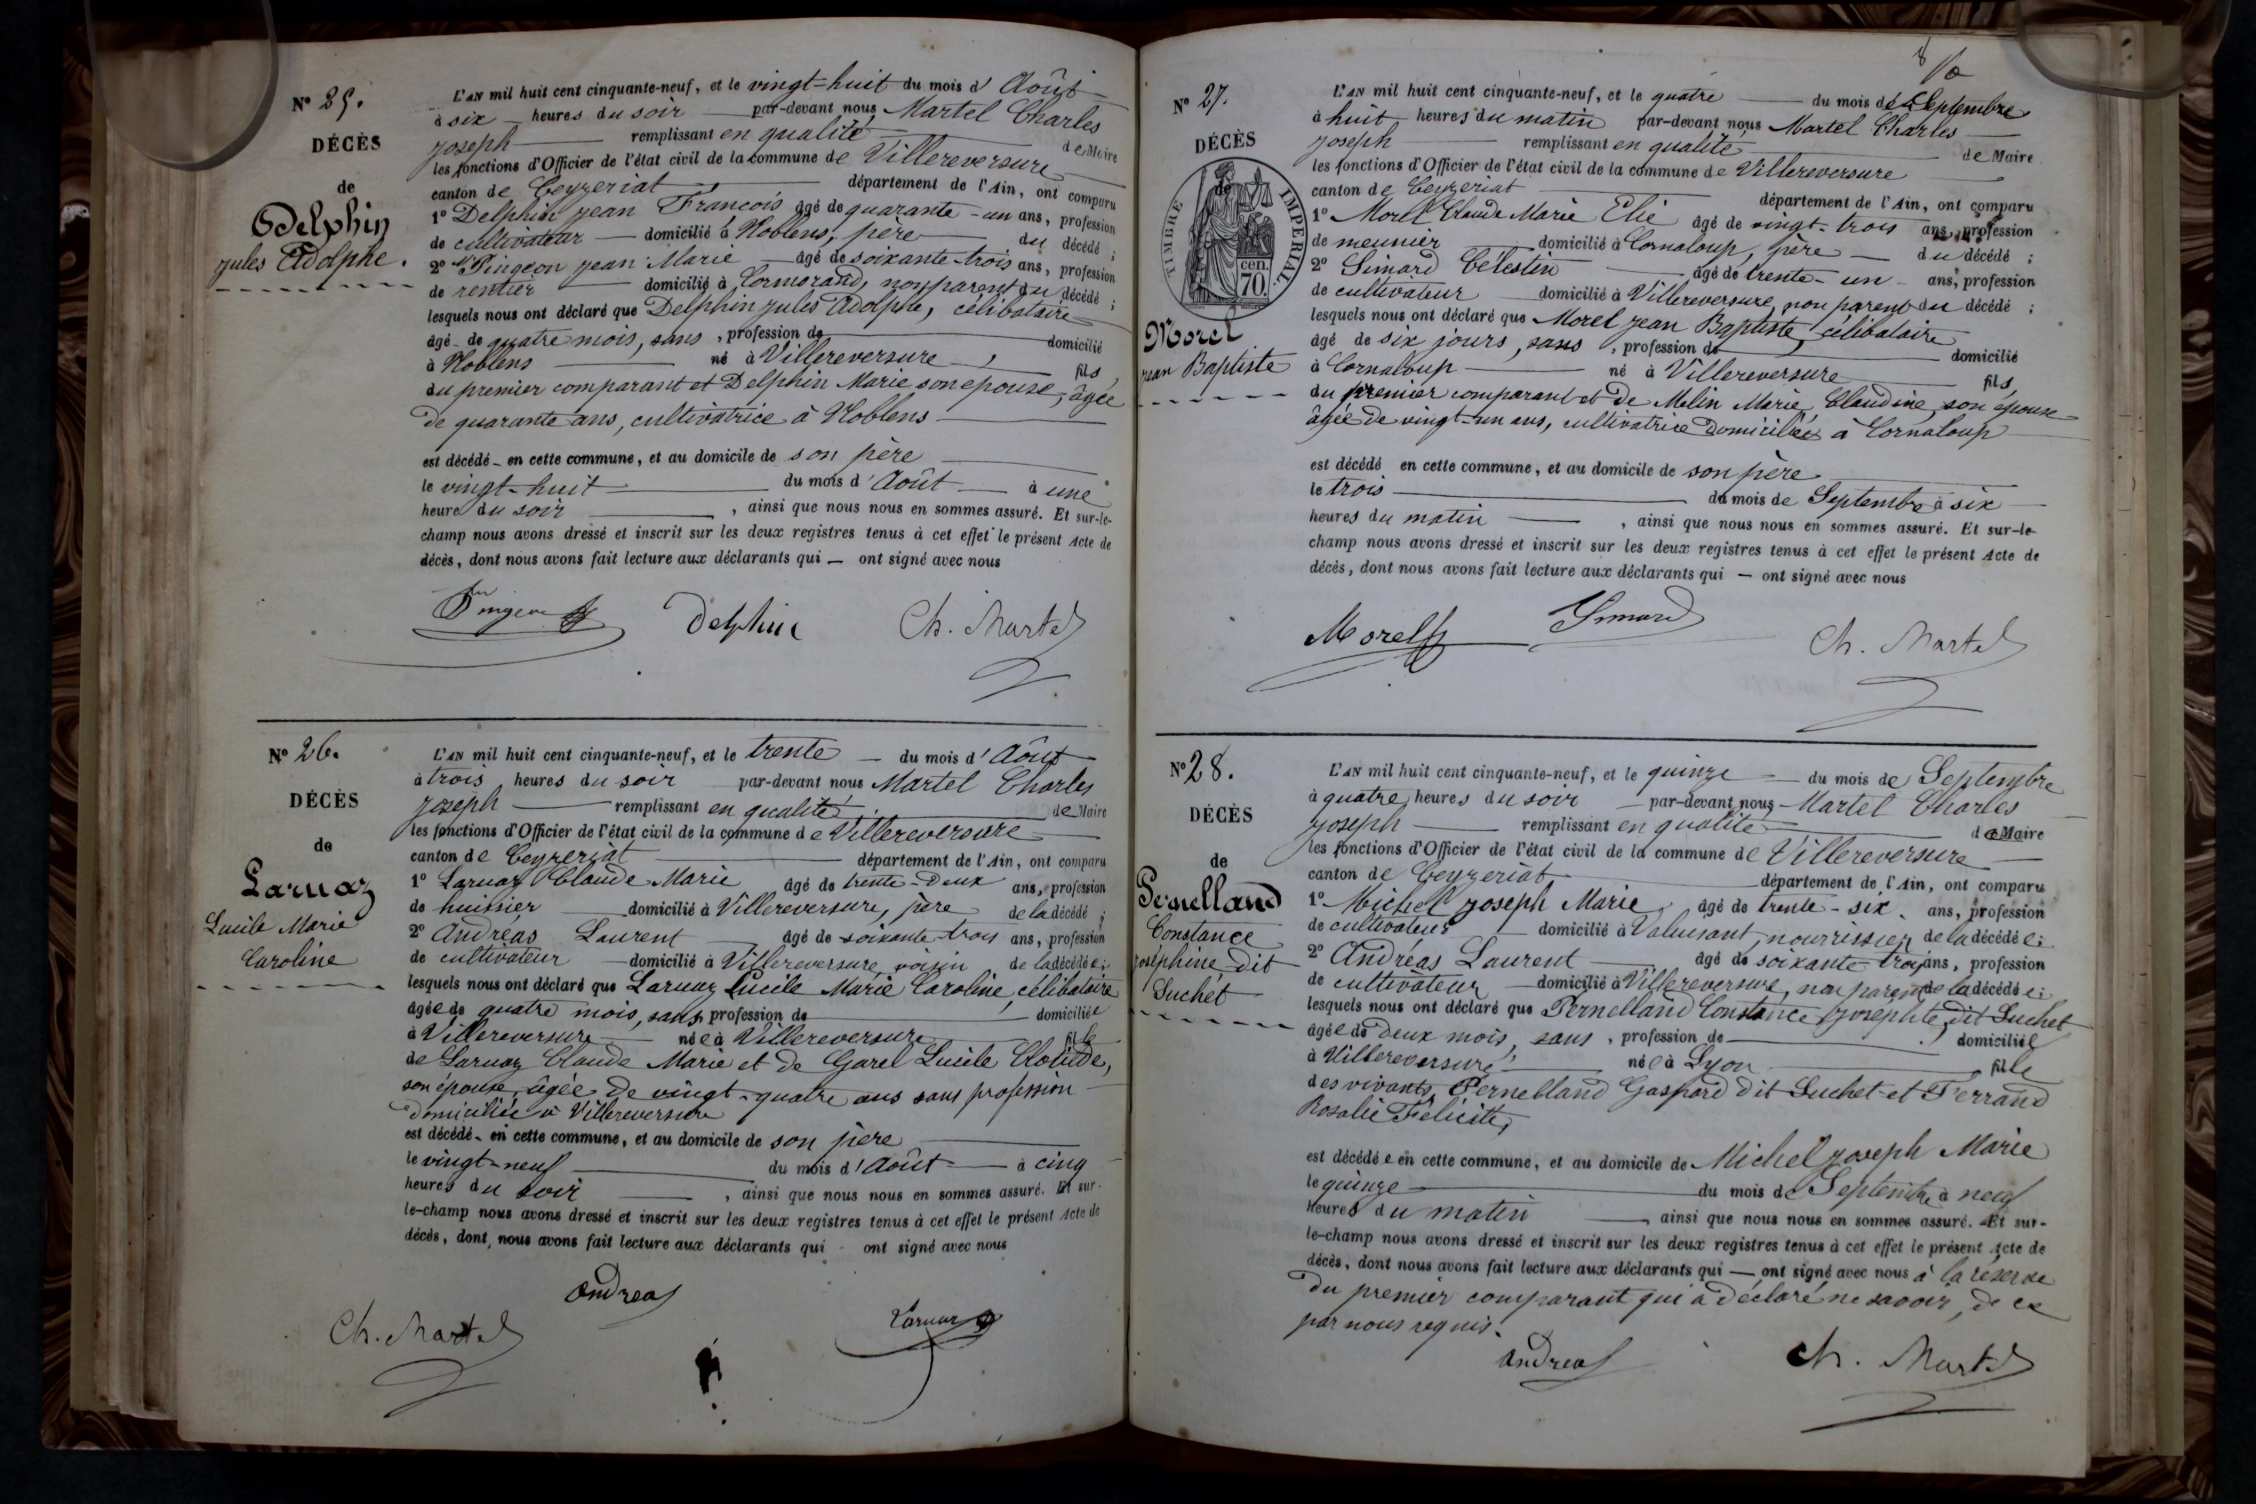 N° 25.
DÉCÈS
de
Delphin
Jules Adolphe.
L'AN mil huit cent cinquante-neuf, et le vingt-huit du mois d'Août
à six heures du soir par-devant nous Martel Charles
Joseph remplissant en qualité de Maire
les fonctions d'Officier de l'état civil de la commune de Villereversure
canton de Ceyzeriat département de l'Ain, ont comparu
1° Delphin Jean François âgé de quarante-un ans, profession
de cultivateur domicilié à Noblens, père du décédé ;
2° Pingeon Jean Marie âgé de soixante-trois ans, profession
de rentier domicilié à Cormorand, non parent du décédé ;
lesquels nous ont déclaré que Delphin Jules Adolphe, célibataire
âgé de quatre mois, sans, profession de domicilié
à Noblens né à Villereversure, fils
du premier comparant et Delphin Marie son épouse, âgée
de quarante ans, cultivatrice à Noblens
est décédé en cette commune, et au domicile de son père
le vingt-huit du mois d'Août à une
heure du soir, ainsi que nous nous en sommes assuré. Et sur-le-
champ nous avons dressé et inscrit sur les deux registres tenus à cet effet le présent Acte de
décès, dont nous avons fait lecture aux déclarants qui — ont signé avec nous
Pingeon Delphin Ch. Martel
N° 26.
DÉCÈS
de
Larnaz
Lucile Marie
Caroline
L'AN mil huit cent cinquante-neuf, et le trente du mois d'Août
à trois heures du soir par-devant nous Martel Charles
Joseph remplissant en qualité de Maire
les fonctions d'Officier de l'état civil de la commune de Villereversure
canton de Ceyzeriat département de l'Ain, ont comparu
1° Larnaz Claude Marie âgé de trente-deux ans, profession
de huissier domicilié à Villereversure, père de la décédé ;
2° Andréas Laurent âgé de soixante-trois ans, profession
de cultivateur domicilié à Villereversure, voisin de la décédée ;
lesquels nous ont déclaré que Larnaz Lucile Marie Caroline, célibataire
âgée de quatre mois, sans, profession de domiciliée
à Villereversure née à Villereversure fille
de Larnaz Claude Marie et de Garel Lucile Clotilde,
son épouse, âgée de vingt-quatre ans sans profession
domiciliée à Villereversure
est décédé en cette commune, et au domicile de son père
le vingt-neuf du mois d'Août à cinq
heures du soir, ainsi que nous nous en sommes assuré. Et sur-
le-champ nous avons dressé et inscrit sur les deux registres tenus à cet effet le présent Acte de
décès, dont nous avons fait lecture aux déclarants qui ont signé avec nous
Andreas
Ch. Martel Larnaz
8
N° 27.
DÉCÈS
de
TIMBRE IMPÉRIAL
cen.
70.
Morel
Jean Baptiste
L'AN mil huit cent cinquante-neuf, et le quatre du mois de Septembre
à huit heures du matin par-devant nous Martel Charles
Joseph remplissant en qualité de Maire
les fonctions d'Officier de l'état civil de la commune de Villereversure
canton de Ceyzeriat département de l'Ain, ont comparu
1° Morel Claude Marie Elie âgé de vingt-trois ans, profession
de meunier domicilié à Cornaloup, père du décédé ;
2° Simard Célestin âgé de trente-un ans, profession
de cultivateur domicilié à Villereversure, non parent du décédé ;
lesquels nous ont déclaré que Morel Jean Baptiste, célibataire
âgé de six jours, sans, profession de domicilié
à Cornaloup né à Villereversure fils
du premier comparant et de Melin Marie Claudine, son épouse
âgée de vingt-un ans, cultivatrice domiciliés à Cornaloup
est décédé en cette commune, et au domicile de son père
le trois du mois de Septembre à six
heures du matin, ainsi que nous nous en sommes assuré. Et sur-le-
champ nous avons dressé et inscrit sur les deux registres tenus à cet effet le présent Acte de
décès, dont nous avons fait lecture aux déclarants qui — ont signé avec nous
Morel Simard Ch. Martel
N° 28.
DÉCÈS
de
Pernelland
Constance
Joséphine dit
Suchet
L'AN mil huit cent cinquante-neuf, et le quinze du mois de Septembre
à quatre heures du soir par-devant nous Martel Charles
Joseph remplissant en qualité de Maire
les fonctions d'Officier de l'état civil de la commune de Villereversure
canton de Ceyzeriat département de l'Ain, ont comparu
1° Michel Joseph Marie âgé de trente-six ans, profession
de cultivateur domicilié à Valuisant, nourrissier de la décédée ;
2° Andréas Laurent âgé de soixante trois ans, profession
de cultivateur domicilié à Villereversure, non parent de la décédée ;
lesquels nous ont déclaré que Pernelland Constance Josephte, dit Suchet
âgée de deux mois, sans, profession de domiciliée
à Villereversure née à Lyon fille
des vivants Pernelland Gaspard dit Suchet et Ferrand
Rosalie Félicité,
est décédée en cette commune, et au domicile de Michel Joseph Marie
le quinze du mois de Septembre à neuf
heures du matin, ainsi que nous nous en sommes assuré. Et sur-
le-champ nous avons dressé et inscrit sur les deux registres tenus à cet effet le présent Acte de
décès, dont nous avons fait lecture aux déclarants qui — ont signé avec nous à la réserve
du premier comparant qui a déclaré ne savoir, de ce
par nous requis.
Andreas Ch. Martel